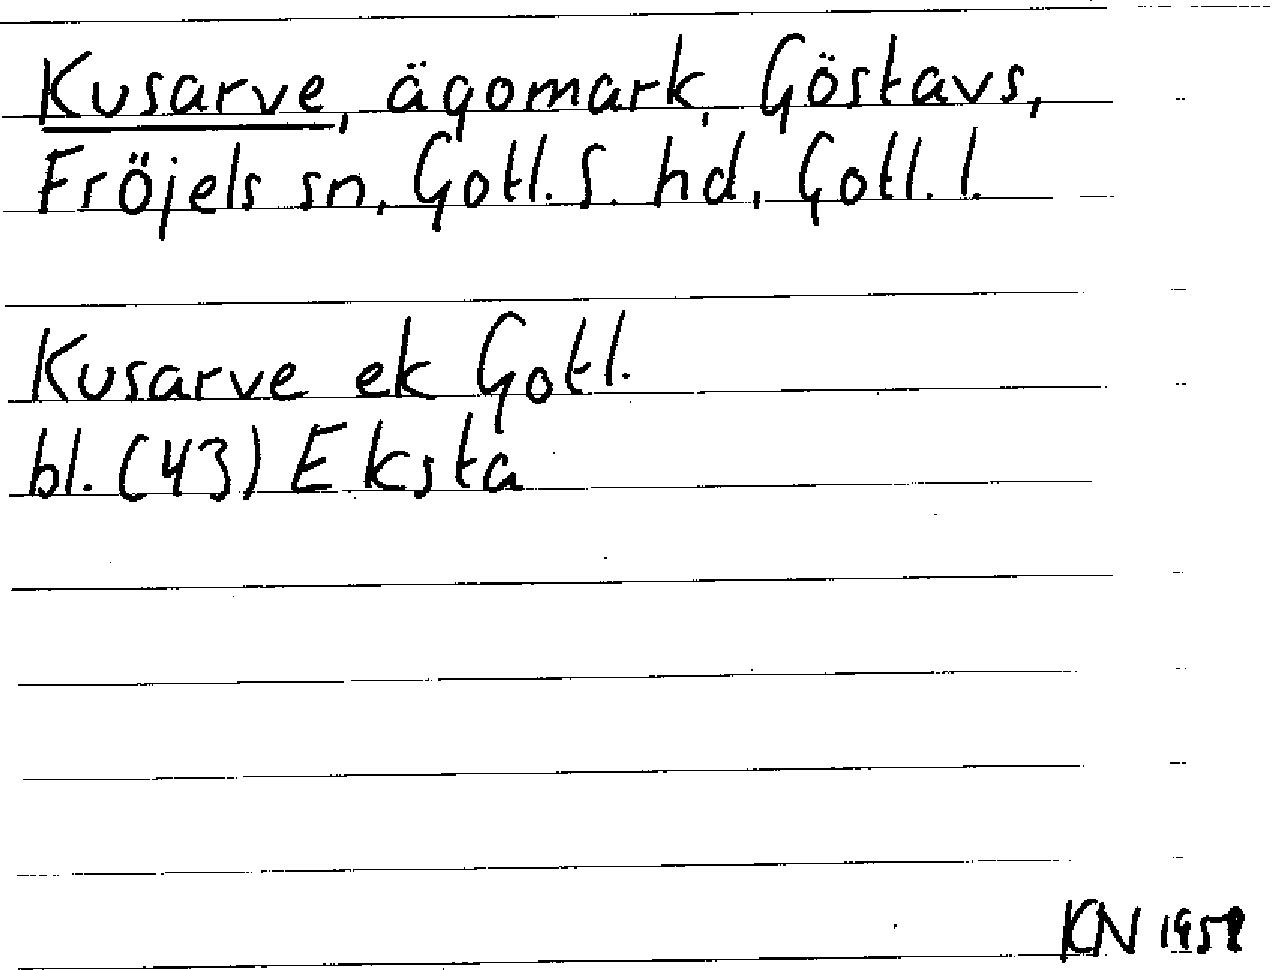 Kusarve, ägomark, Göstavs,
Fröjels sn, Gotl. S. hd, Gotl. l.
Kusarve ek Gotl.
bl. (43) Eksta
KN